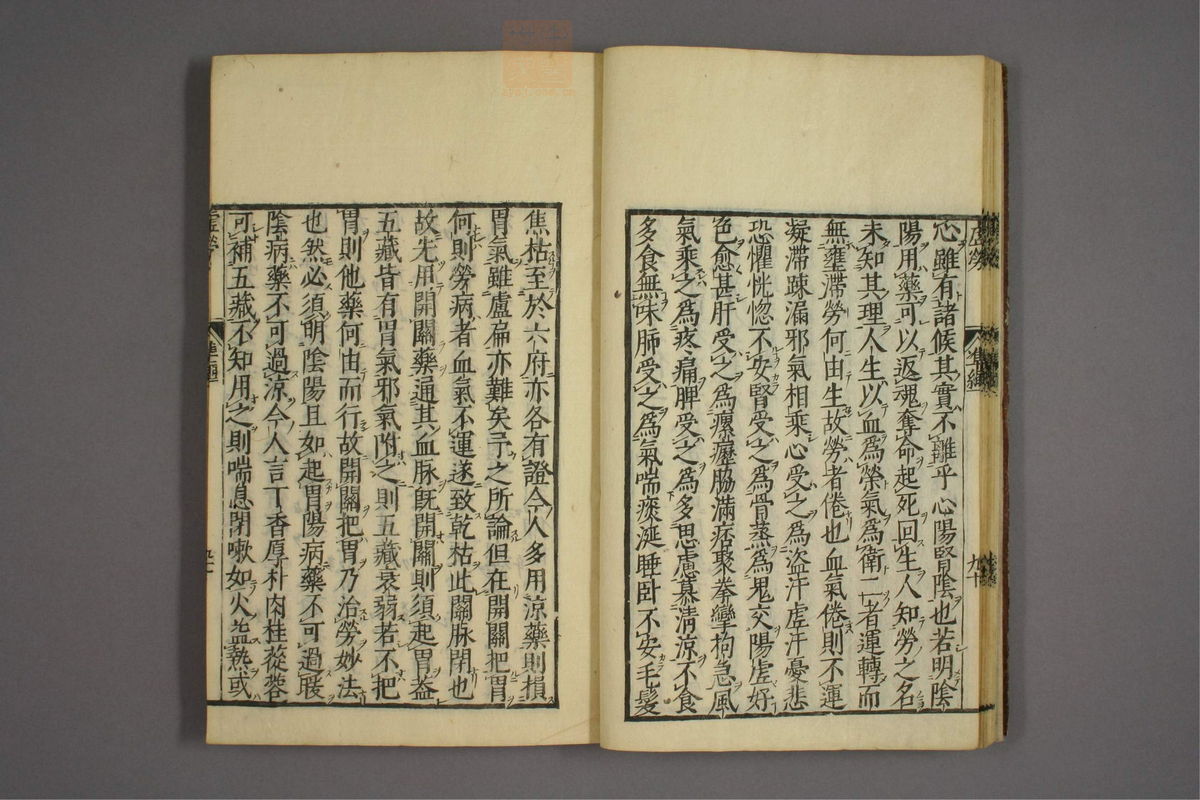 虛勞
九十
心雖有諸候其實不離乎心陽腎陰也若明陰
陽用藥可以返魂奪命起死回生人知勞之名
未知其理人生以血爲榮氣爲衛二者運轉而
無壅滯勞何由生故勞者倦也血氣倦則不運
凝滯踈漏邪氣相乘心受之爲盜汗虛汗憂悲
恐懼恍惚不安腎受之爲骨蒸爲鬼交陽虛好
色愈甚肝受之爲瘰癧脇滿痞聚拳攣拘急風
氣乘之爲疼痛脾受之爲多思慮慕清涼不食
多食無味肺受之爲氣喘痰涎睡卧不安毛髮
焦枯至於六府亦各有證今人多用涼藥則損
胃氣雖盧扁亦難矣予之所論但在開關把胃
何則勞病者血氣不運遂致乾枯此關脉閉也
故先用開關藥通其血脉旣開關則須起胃葢
五藏皆有胃氣邪氣附之則五藏衰弱若不把
胃則他藥何由而行故開關把胃乃治勞妙法
也然必須明陰陽且如起胃陽病藥不可過暖
陰病藥不可過凉今人言丁香厚朴肉桂蓯蓉
可補五藏不知用之則喘息閉嗽如火益熱或